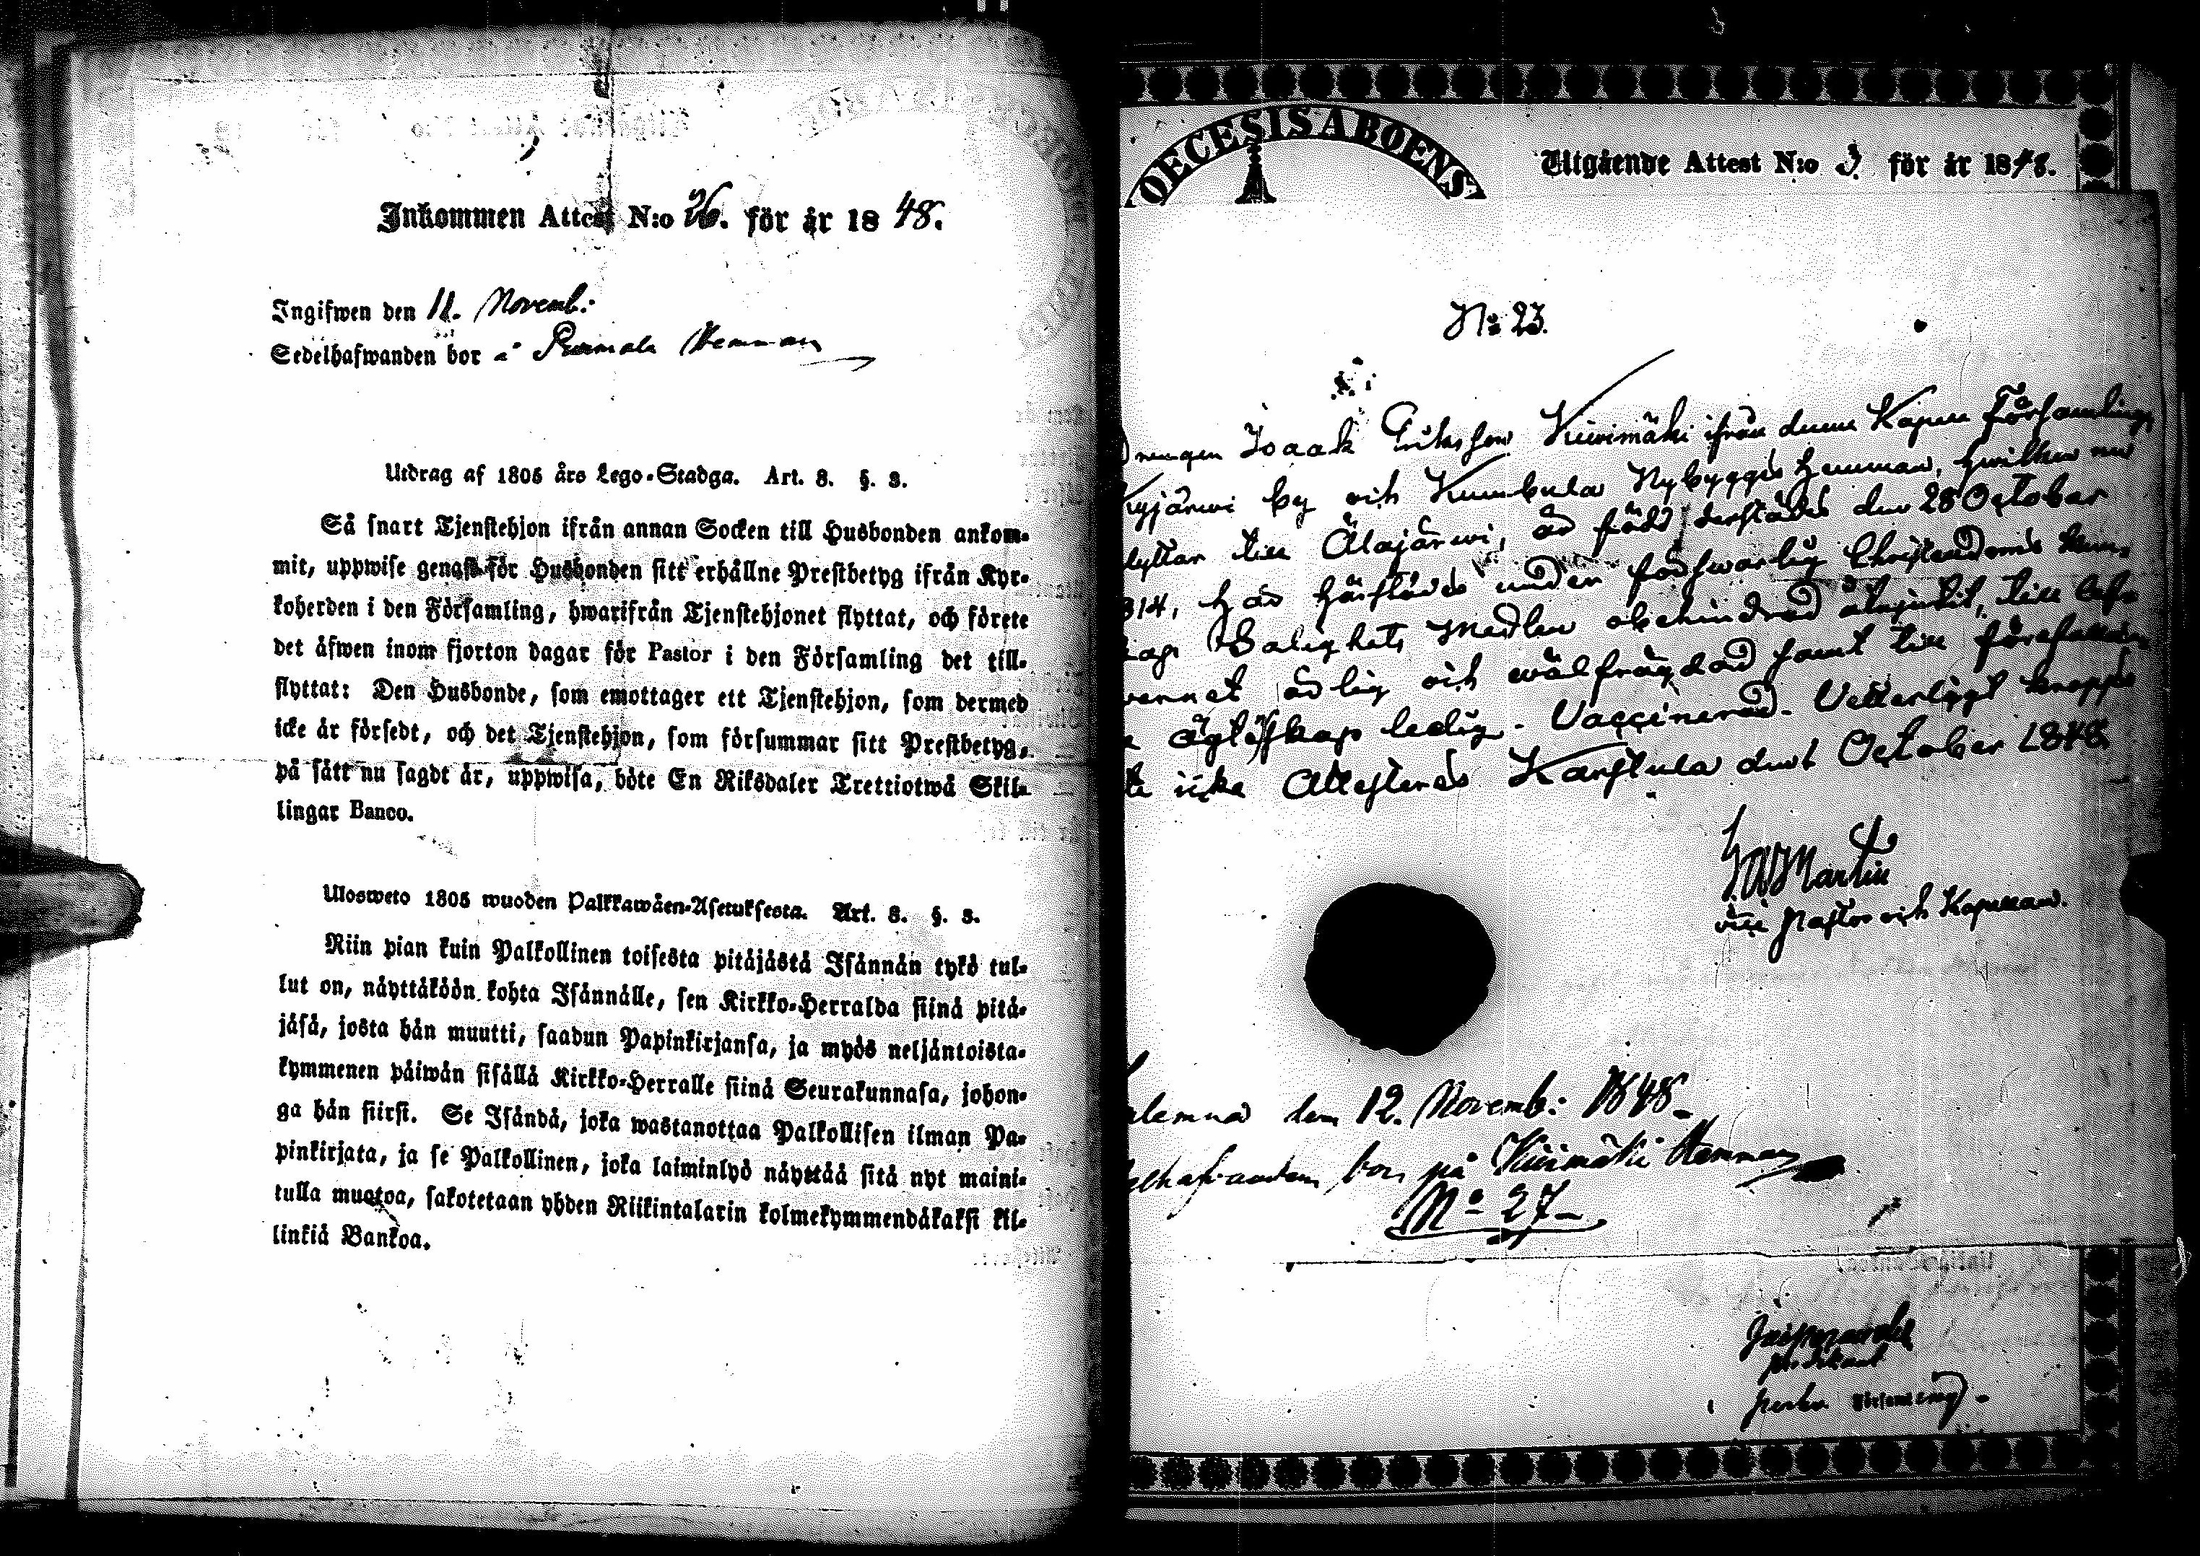 Inkommen Attest N:o 26. för år 1848.
Ingifwen den 11. Novemb:
Sedelhafwanden bor å Hemman
Utdrag af 1805 års Lego-Stadga. Art. 8. §. 3.
Så snart Tjenstehjon ifrån annan Socken till Husbonden ankom-
mit, uppwise genast för Husbonden sitt erhållne Prestbetyg ifrån Kyr-
koherden i den Församling, hwarifrån Tjenstehjonet flyttat, och förete
det äfwen inom fjorton dagar för Pastor i den Församling det till-
flyttat: Den Husbonde, som emottager ett Tjenstehjon, som dermed
icke är försedt, och det Tjenstehjon, som försummar sitt Prestbetyg,
på sätt nu sagdt är, uppwisa, böte En Riksdaler Trettiotwå Skil-
lingar Banco.
Ulosweto 1805 wuoden Palkkawäen-Asetuksesta. Art. 8. §. 3.
Niin pian kuin Palkollinen toisesta pitäjästä Isännän tykö tul-
lut on, näyttäköön kohta Isännälle, sen Kirkko-Herralda siinä pitä-
jäsä, josta hän muutti, saadun Papinkirjansa, ja myös neljäntoista-
kymmenen päiwän sisällä Kirkko-Herralle siinä Seurakunnasa, johon-
ga hän siirsi. Se Isändä, joka wastanottaa Palkollisen ilman Pa-
pinkirjata, ja se Palkollinen, joka laiminlyö näyttää sitä nyt maini-
tulla muotoa, sakotetaan yhden Riikintalarin kolmekymmendäkaksi kil-
linkiä Bankoa.
OECESIS ABOENS
Utgående Attest N:o 3 för år 1848.
No 23.
Drengen Isaak Eriksson Kiwimäki ifrån denne Kapell Församling,
Kyjärwi by och Kumbula Nybygges hemman, hwilken nu
flyttar till Alajärwi, är född derstädes den 28 October
814, har härstädes under förswarlig Christendoms kun-
skap Salighets Medlen obehindrad åtnjutit, till lef-
wernet ärlig och wälfrägdad samt till förefallan-
e ägtesskap ledig. Vaccinerad. Vetterligt koppo
te icke Attesteras Karstula den 1 October 1848
Martin
vice Pastor och Kapellan.
lemnad den 12. Novemb: 1848.
elhafvanden bor på Kiwimäki Hemman
No 27
Församling.